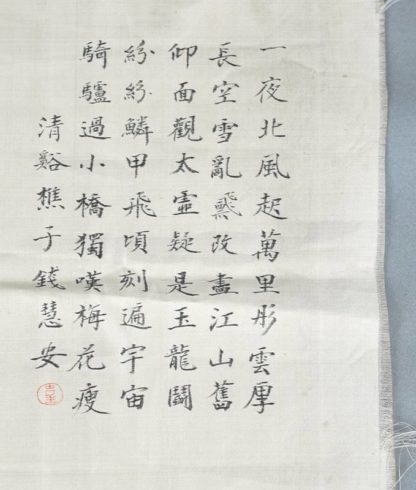 一夜北風起萬里彤雲厚
長空雪亂飄改盡江山舊
仰面觀太虛疑是玉龍鬪
紛紛鱗甲飛頃刻遍宇宙
騎驢過小橋獨嘆梅花瘦
清谿樵子錢慧安
吉生